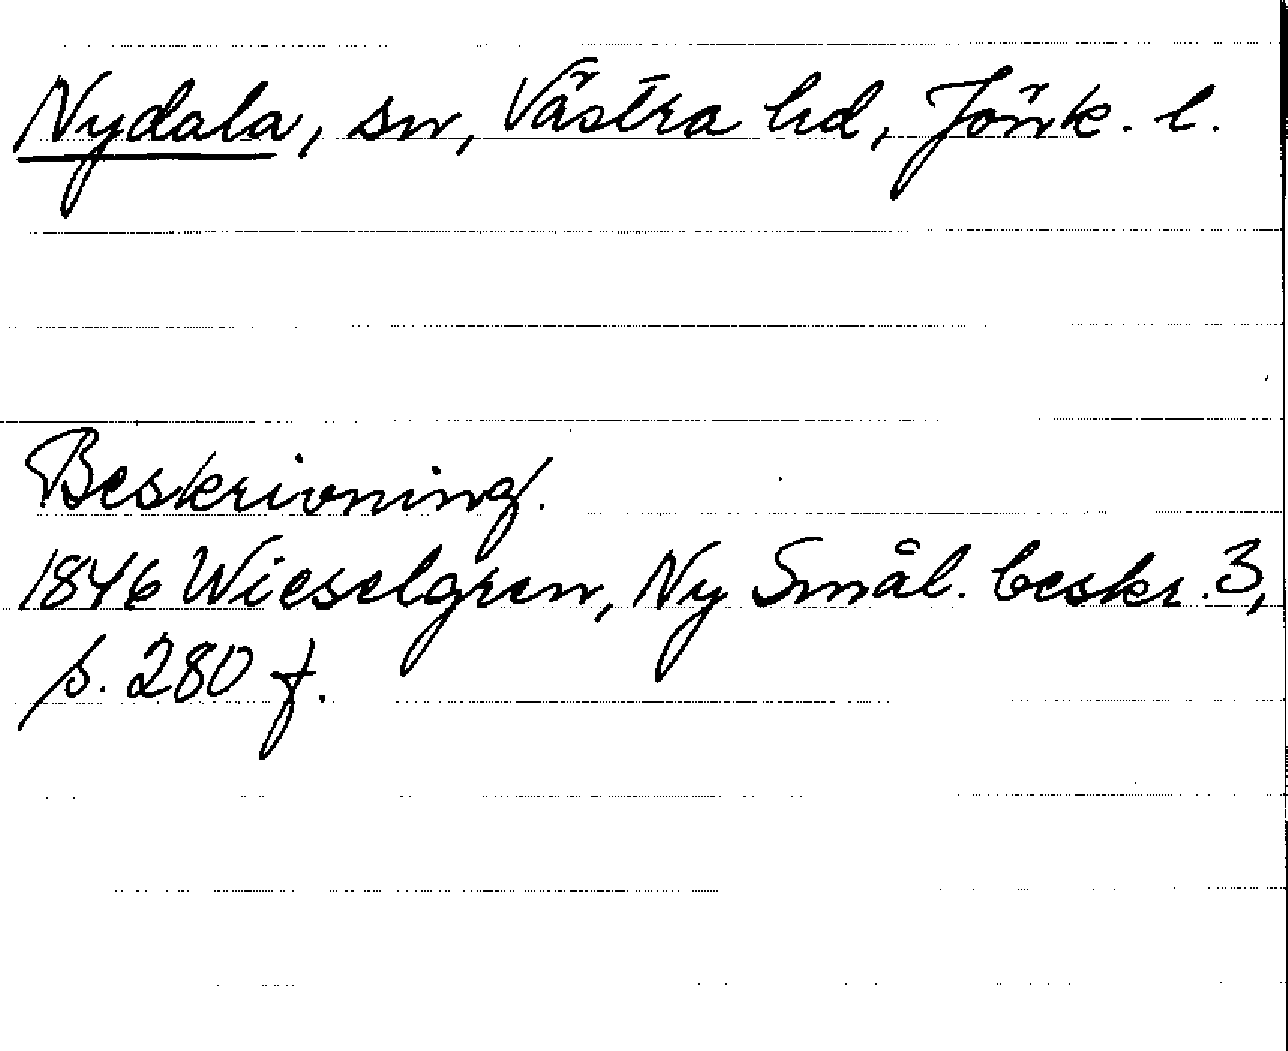 Nydala, sn, Västra hd, Jönk. l.
Beskrivning.
1846 Wieselgren, Ny Smål. beskr. 3,
s. 280 f.